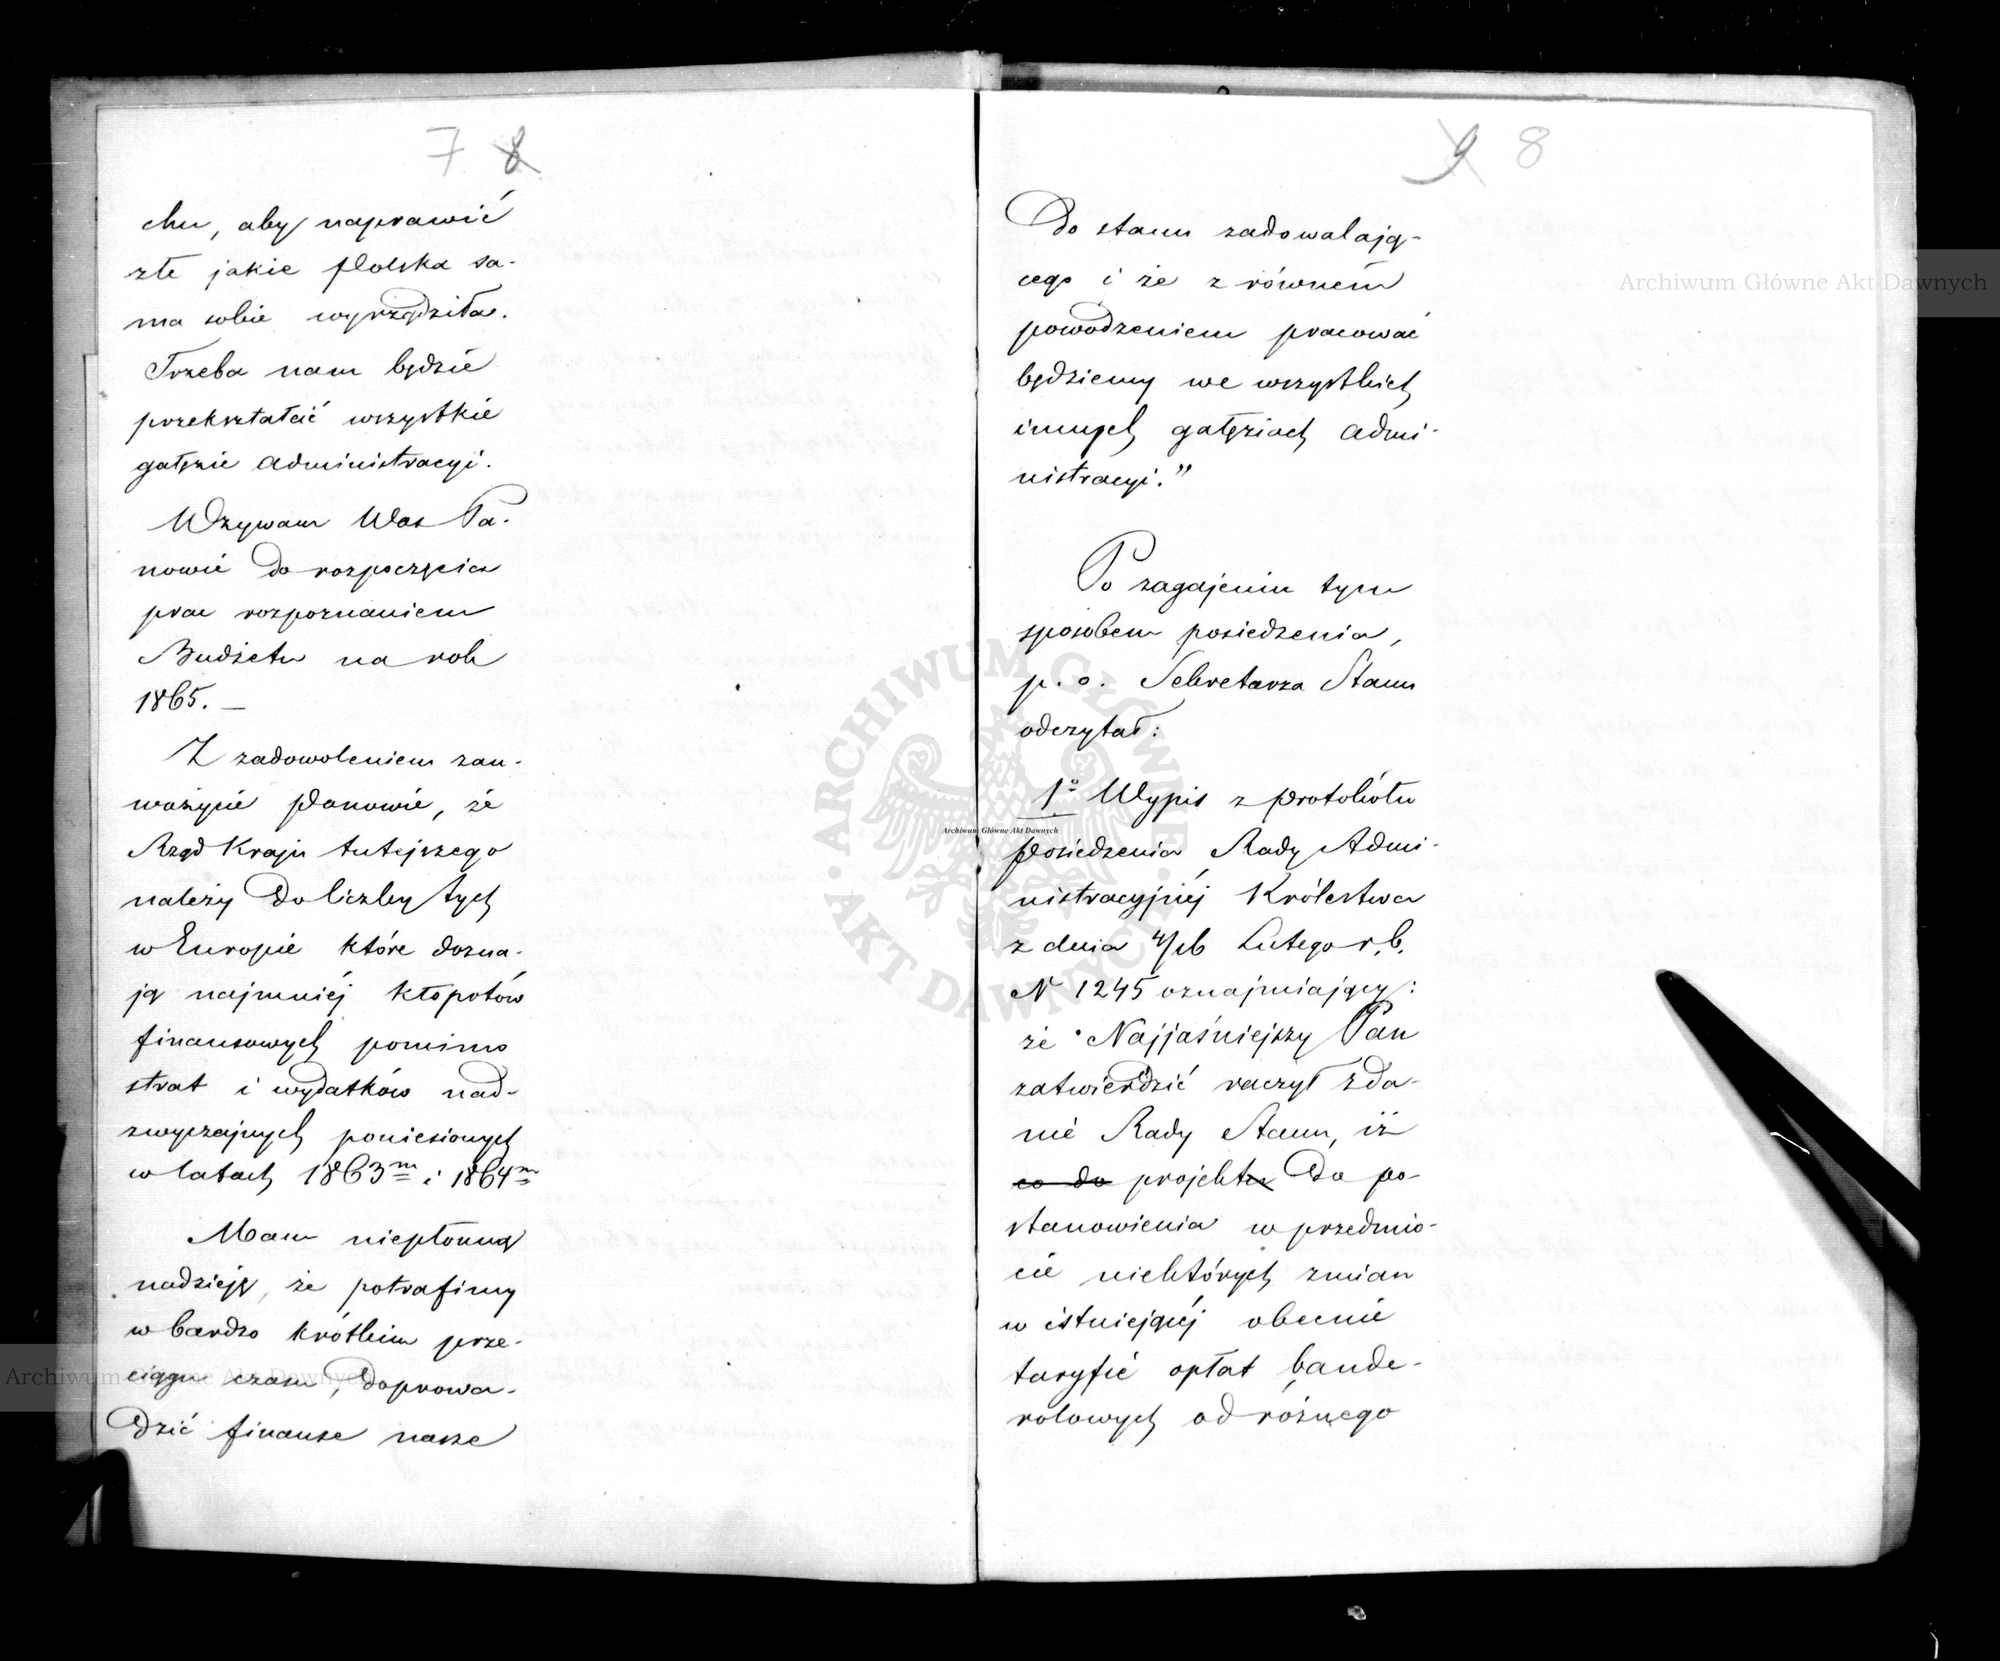 7 8
chu, aby naprawić
złe jakie Polska sa-
ma sobie wyrządziła.
Trzeba nam będzie
przekształcić wszystkie
gałęzie administracyi.
Wzywam Was Pa-
nowie do rozpoczęcia
prac rozpoznaniem
Budżetu na rok
1865. —
Z zadowoleniem zau-
ważycie Panowie, że
Rząd Kraju tutejszego
należy do liczby tych
w Europie które dozna-
ją najmniéj kłopotów
finansowych pomimo
strat i wydatków nad-
zwyczajnych poniesionych
w latach 1863m i 1864m
Mam niepłonną
nadzieję, że potrafimy
w bardzo krótkim prze-
ciągu czasu, doprowa-
dzić finanse nasze
9 8
do stanu zadowalają-
cego i że z równém
powodzeniem pracować
będziemy we wszystkich
innych gałęziach admi-
nistracyi."
Po zagajeniu tym
sposobem posiedzenia,
p. o. Sekretarza Stanu
odczytał:
1° Wypis z protokółu
Posiedzenia Rady Admi-
nistracyjnéj Królestwa
z dnia 4/16 Lutego r. b.
N 1245 oznajmiający:
że Najjaśniejszy Pan
zatwierdzić raczył zda-
nie Rady Stanu, iż
co do projektu do po-
stanowienia w przedmio-
cie niektórych zmian
w istniejącéj obecnie
taryfie opłat bande-
rolowych od różnego
Archiwum Główne Akt Dawnych
Archiwum Główne Akt Dawnych
Archiwum Główne Akt Dawnych
ARCHIWUM GŁÓWNE AKT DAWNYCH